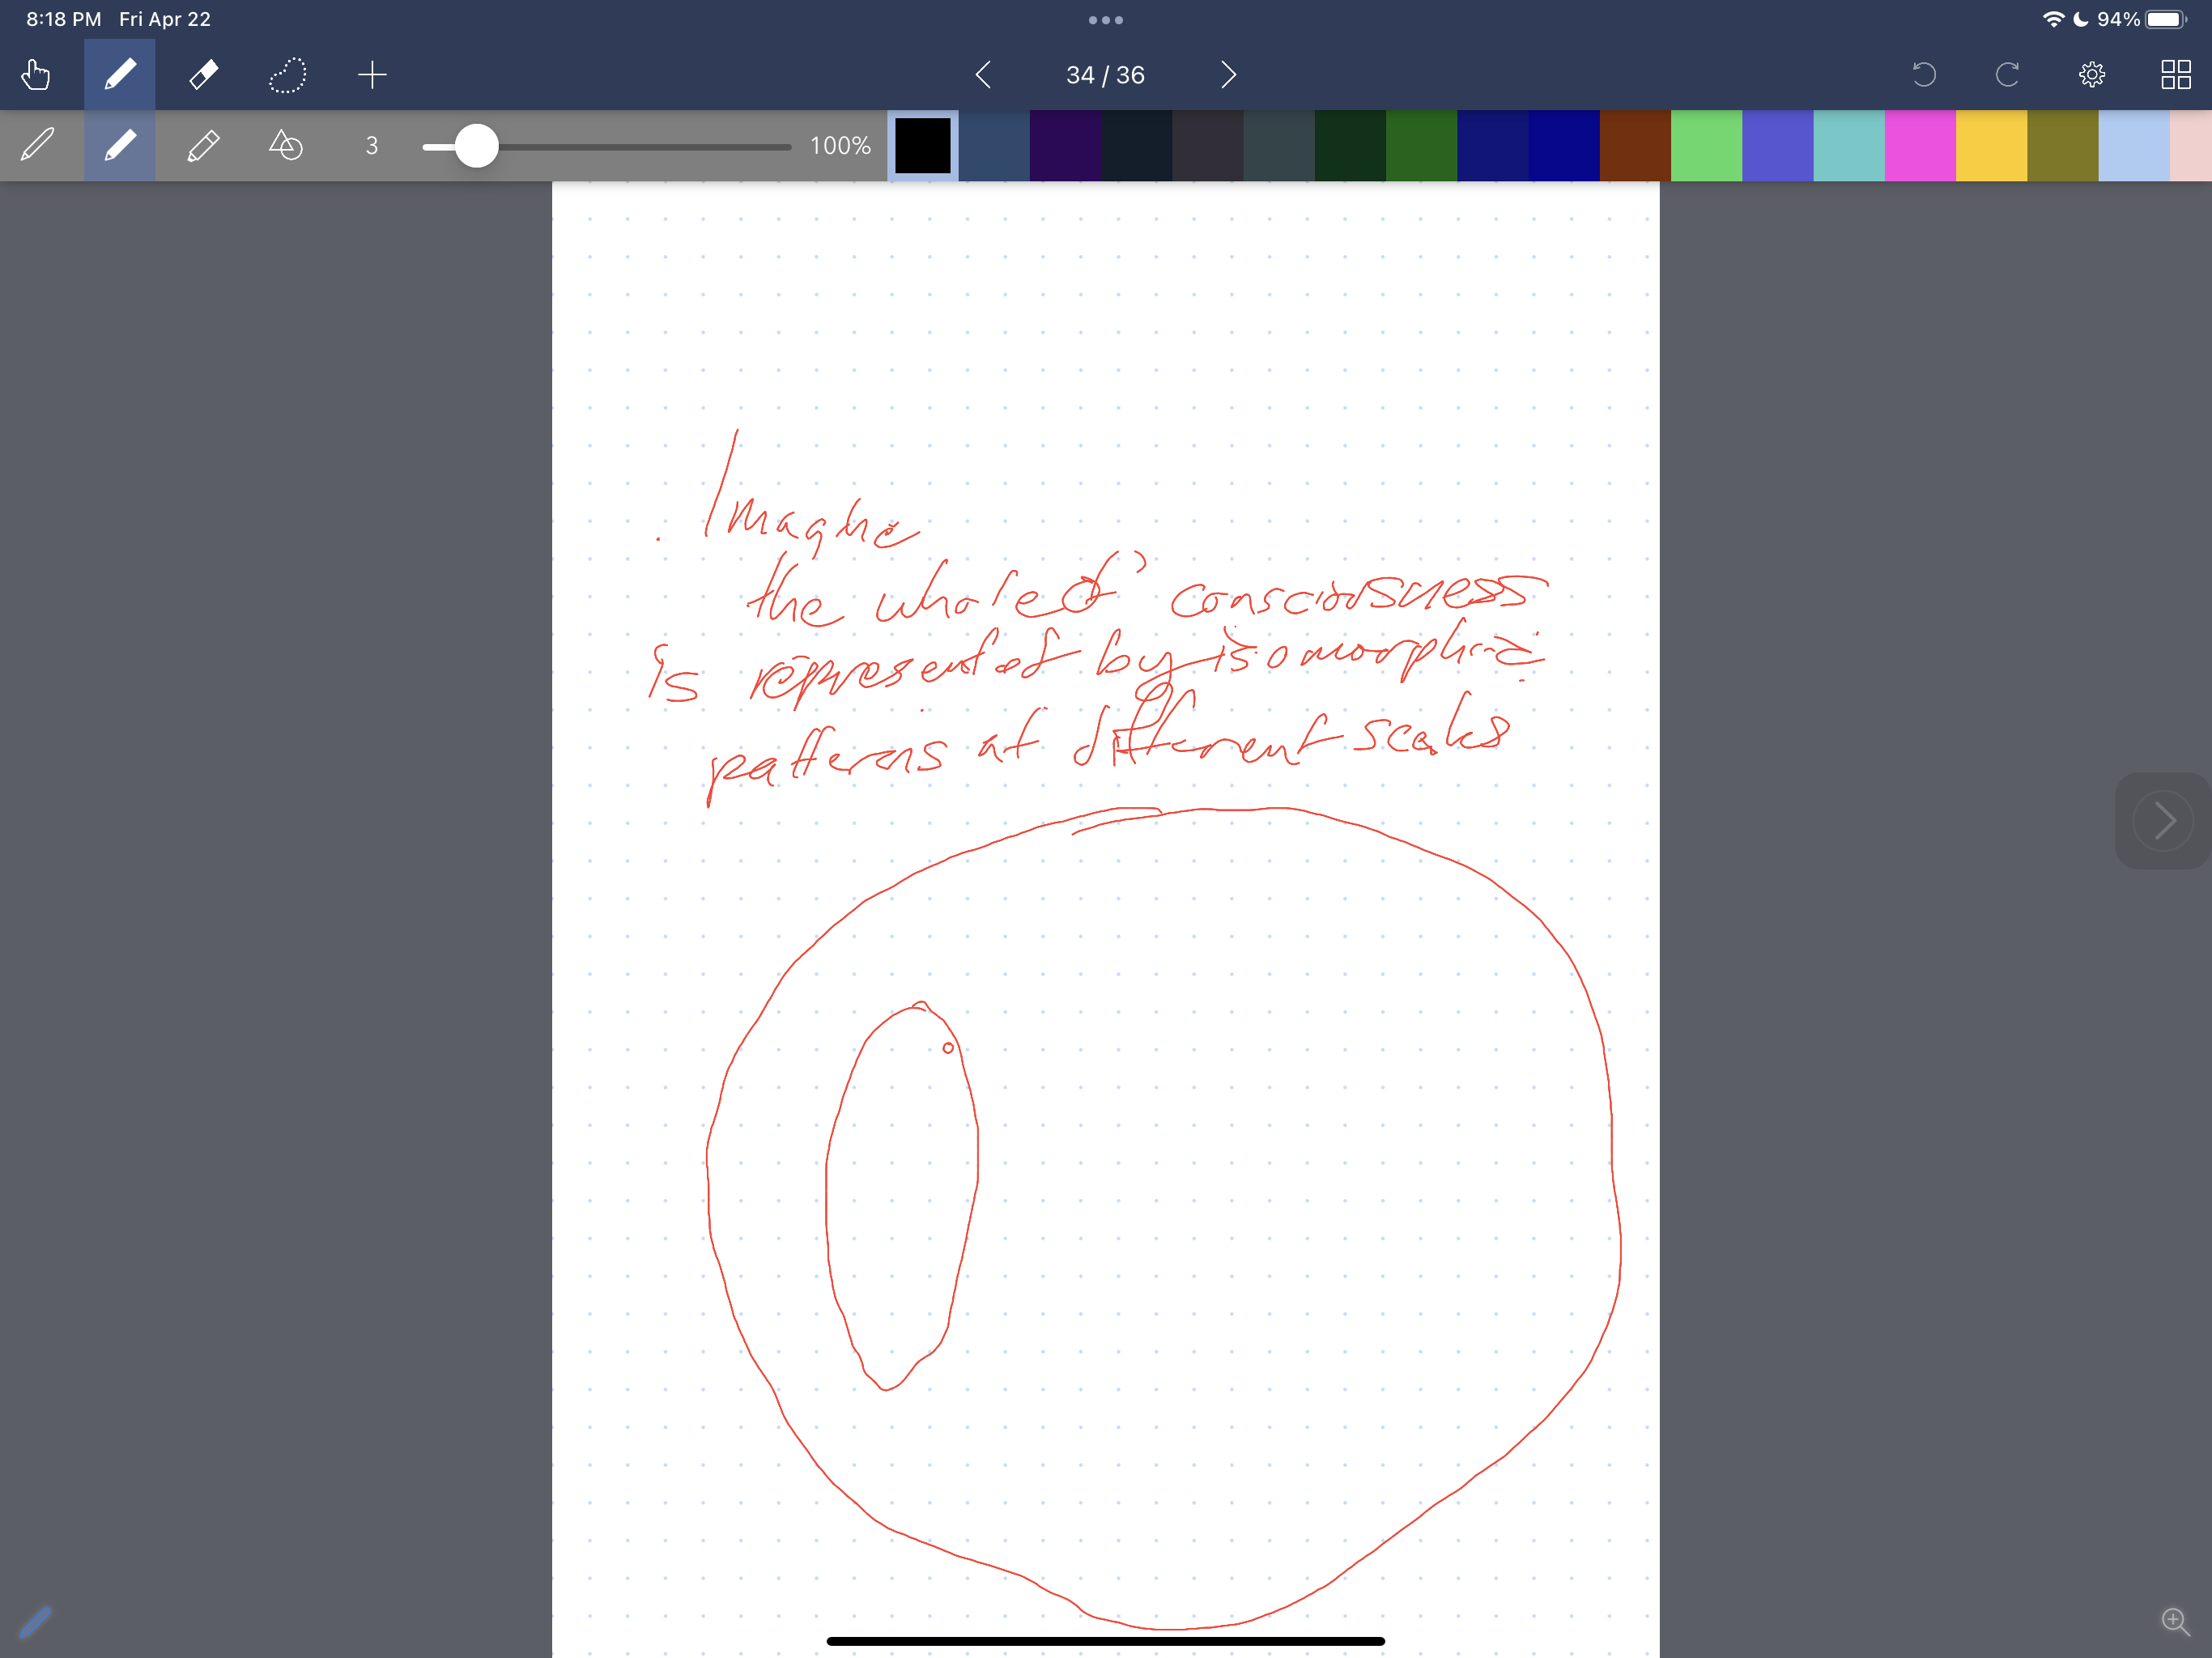 8:18 PM Fri Apr 22
94%
34 / 36
3
100%
Imagine
the whole of consciousness
is represented by isomorphic
patterns at different scales